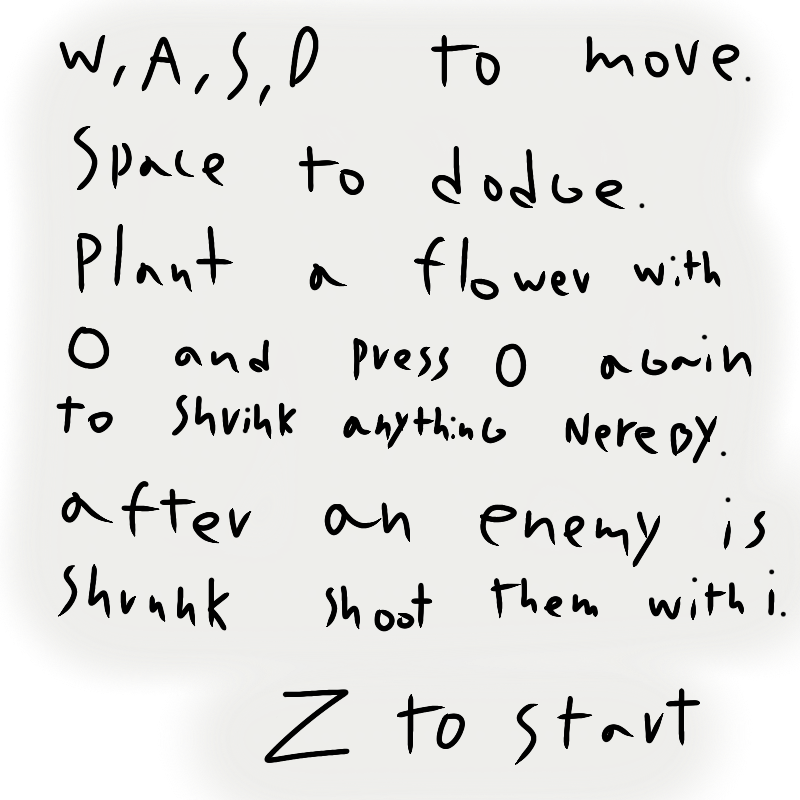 W, A, S, D to move.
Space to dodge.
Plant a flower with
O and press O again
to shrink anything Nereby.
after an enemy is
shrunk shoot them with i.
Z to start